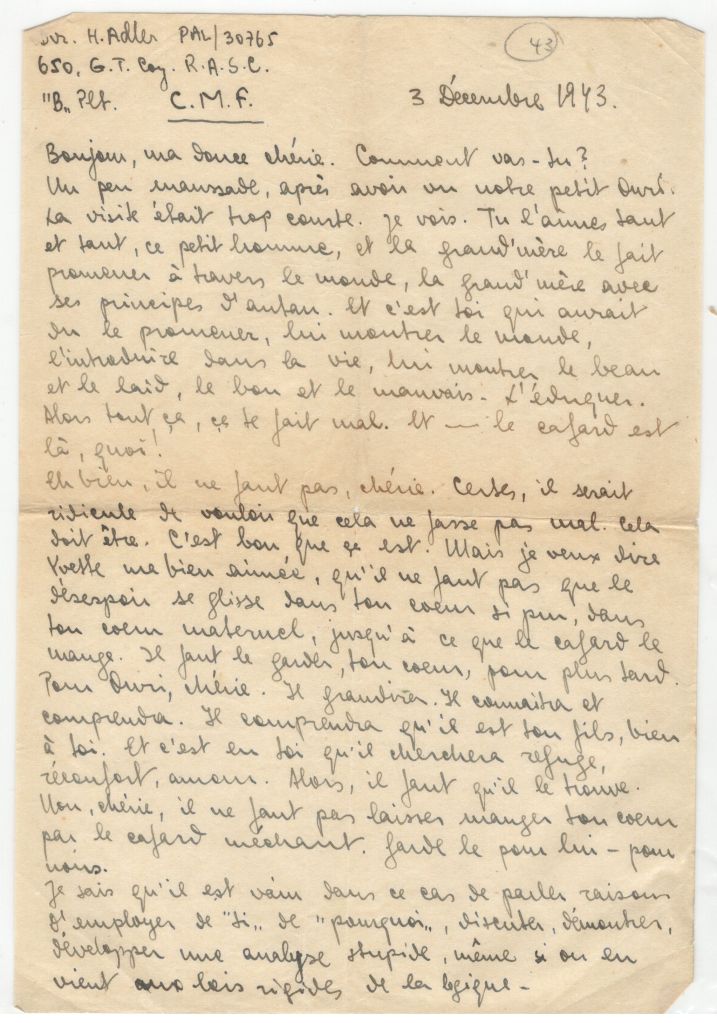 Dvr. H. Adler PAL/30765
43
650, G.T. Coy. R.A.S.C.
"B„ Plt. C.M.F.
3 Décembre 1943.
Bonjour, ma douce chérie. Comment vas-tu?
Un peu maussade, après avoir vu notre petit Ouri.
La visite était trop courte. Je vois. Tu l'aimes tant
et tant, ce petit homme, et la grand'mère le fait
promener à travers le monde, la grand'mère avec
ses principes d'antan. Et c'est toi qui aurait
du le promener, lui montrer le monde,
l'introduire dans la vie, lui montrer le beau
et le laid, le bon et le mauvais - L'éduquer.
Alors tout ça, ça te fait mal. Et — le cafard est
là, quoi!
Eh bien, il ne faut pas, chérie. Certes, il serait
ridicule de vouloir que cela ne fasse pas mal. Cela
doit être. C'est bon que ça est. Mais je veux dire
Yvette ma bien aimée, qu'il ne faut pas que le
désespoir se glisse dans ton coeur si pur, dans
ton coeur maternel, jusqu'à ce que le cafard le
mange. Il faut le garder, ton coeur, pour plus tard.
Pour Ouri, chérie. Il grandira. Il connaitra et
comprendra. Il comprendra qu'il est ton fils, bien
à toi. Et c'est en toi qu'il cherchera refuge,
réconfort, amour. Alors, il faut qu'il le trouve.
Non, chérie, il ne faut pas laisser manger ton coeur
par le cafard méchant. Garde le pour lui - pour
nous.
Je sais qu'il est vain dans ce cas de parler raisons
d'employer de "si„ de "pourquoi„, discuter, démontrer,
développer une analyse stupide, même si on en
vient aux lois rigides de la logique -